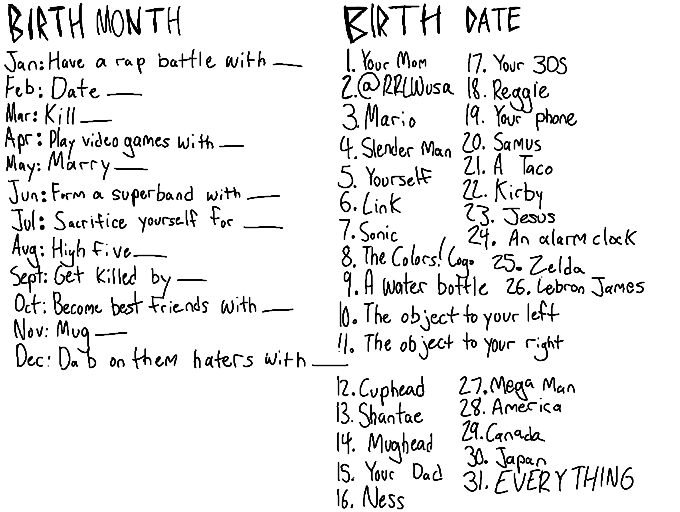 BIRTH MONTH
Jan: Have a rap battle with __
Feb: Date __
Mar: Kill __
Apr: Play video games with __
May: Marry __
Jun: Form a superband with __
Jul: Sacrifice yourself for __
Aug: High five __
Sept: Get killed by __
Oct: Become best friends with __
Nov: Mug __
Dec: Dab on them haters with __
BIRTH DATE
1. Your Mom
2. @RRLNusa
3. Mario
4. Slender Man
5. Yourself
6. Link
7. Sonic
8. The Colors! Logo
9. A water bottle
10. The object to your left
11. The object to your right
12. Cuphead
13. Shantae
14. Mughead
15. Your Dad
16. Ness
17. Your 3DS
18. Reggie
19. Your phone
20. Samus
21. A Taco
22. Kirby
23. Jesus
24. An alarm clock
25. Zelda
26. Lebron James
27. Mega Man
28. America
29. Canada
30. Japan
31. EVERYTHING